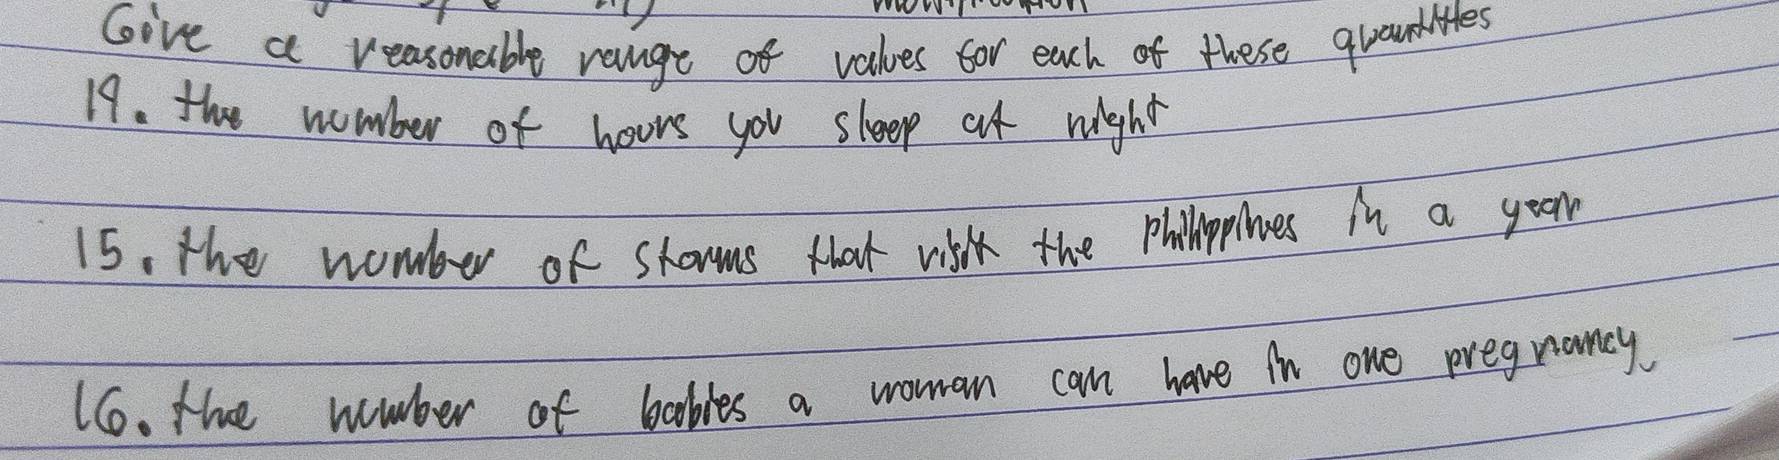 Give a reasonable range of values for each of these quantities
19. the number of hours you sleep at night
15. the number of storms that visit the Philippines in a year
16. the number of babies a woman can have in one pregnancy